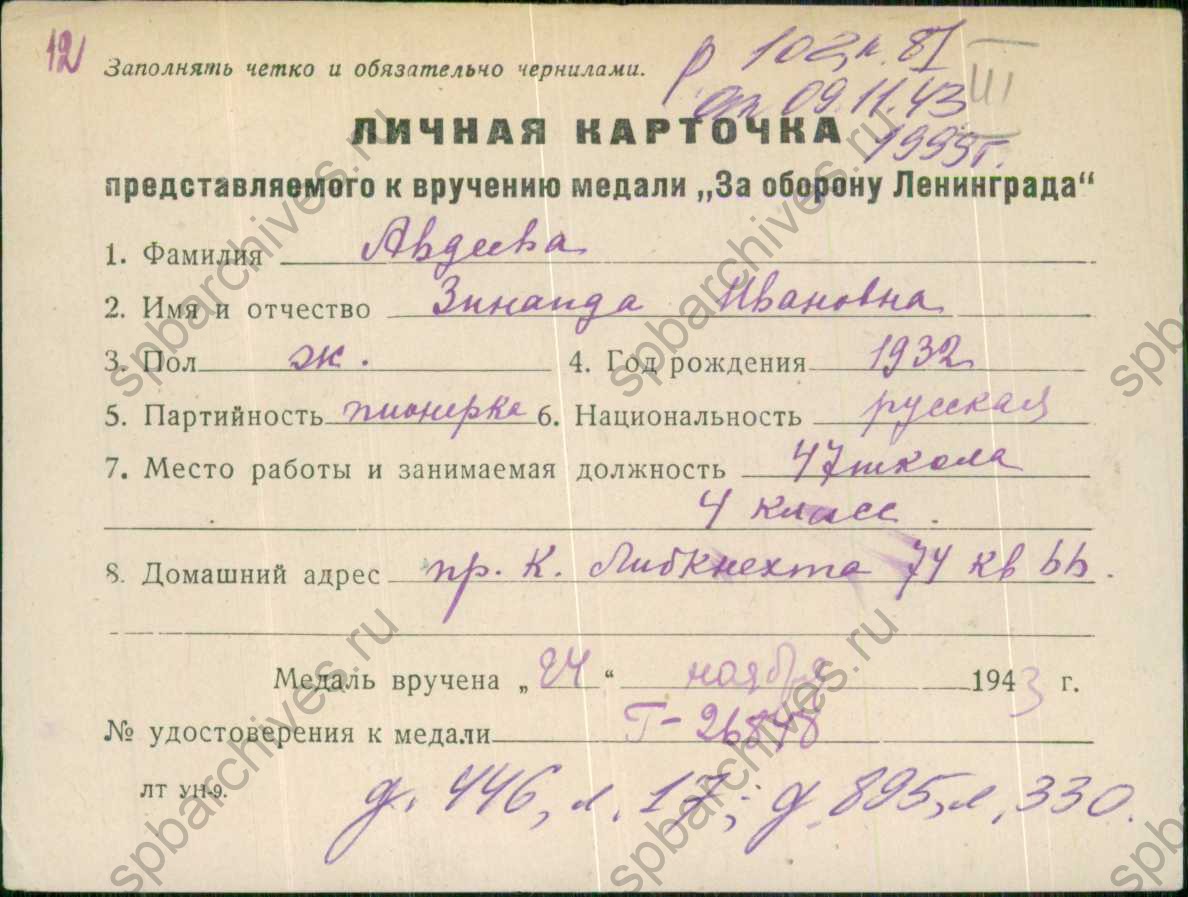 12
Заполнять четко и обязательно чернилами.
р 102, п. 81
III
от 09.11.43
1999г.
ЛИЧНАЯ КАРТОЧКА
представляемого к вручению медали „За оборону Ленинграда“
1. Фамилия Авдеева
2. Имя и отчество Зинаида Ивановна
3. Пол ж. 4. Год рождения 1932
5. Партийность пионерка 6. Национальность русская
7. Место работы и занимаемая должность 47 школа
4 класс.
8. Домашний адрес пр. К. Либкнехта 74 кв 66.
Медаль вручена „24“ ноября 1943 г.
№ удостоверения к медали Г-26848
ЛТ УН-9.
д. 446, л. 17; д. 895, л. 330.
spbarchives.ru